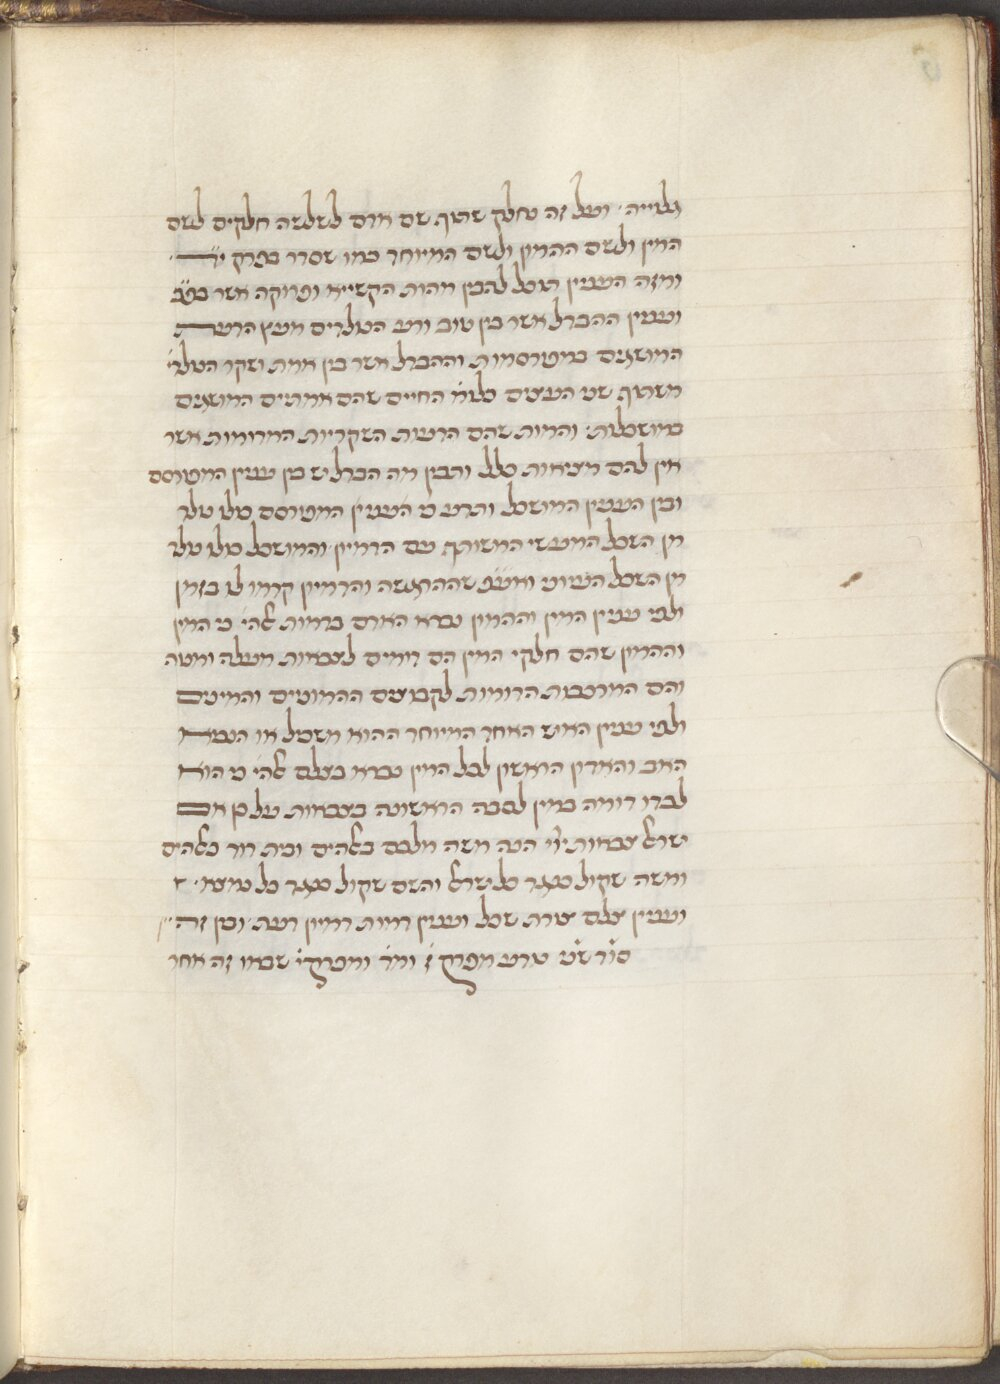 גלוייה · ועל זה נחלק שתוף שם אדם לשלשה חלקים לשם
המין ולשם ההמון ולשם המיוחד כמו שסדר בפרק י״ד ·
ומזה הענין תוכל להבין מהות הקשייא ופרוקה אשר בפ״ב
וענין ההבדל אשר בין טוב ורע הנולדים מעץ הדעת
המושגים במפורסמות וההבדל אשר בין אמת ושקר הנולד׳
משתוף שני העצים כלומ׳ החיים שהם אמתיים המושגים
במושכלות · והמות שהם הדעות השקריות המדומות אשר
אין להם מציאות כלל ותבין מה הבדל יש בין ענין המפורסם
ובין הענין המושכל ותדע כי הענין המפורסם כולו נולד
מן השכל המעשי המשותף עם הדמיון · והמושכל כולו נולד
מן השכל העיוני ואע״פ שההרגשה והדמיון קדמו לו בזמן
ולפי ענין המין וההמון נברא האדם בדמות אלהי׳ כי המין
וההמון שהם חלקי המין הם דומים לצבאות מעלה ומטה
והם המורכבות הדומות לקבוצים ההמוניים והמיניים
ולפי ענין האיש האחד המיוחד ההוא משכיל או הנביא
האב והאדון הראשון לכל המין נברא בצלם אלהי׳ כי הוא
לבדו דומה במין לסבה הראשונה בצבאות על כן אם
ישראל צבאות י״י הנה משה מלבם באלהים ובית דוד כאלהים
ומשה שקול כנגד כל ישראל והשם שקול כנגד כל נמצא ·
וענין צלם צורת שכל וענין דמות דמיון דעת · ובין זה
סוד שני נודע מפרק ז׳ ומי״ד ומפרק י׳ שבאו זה אחר